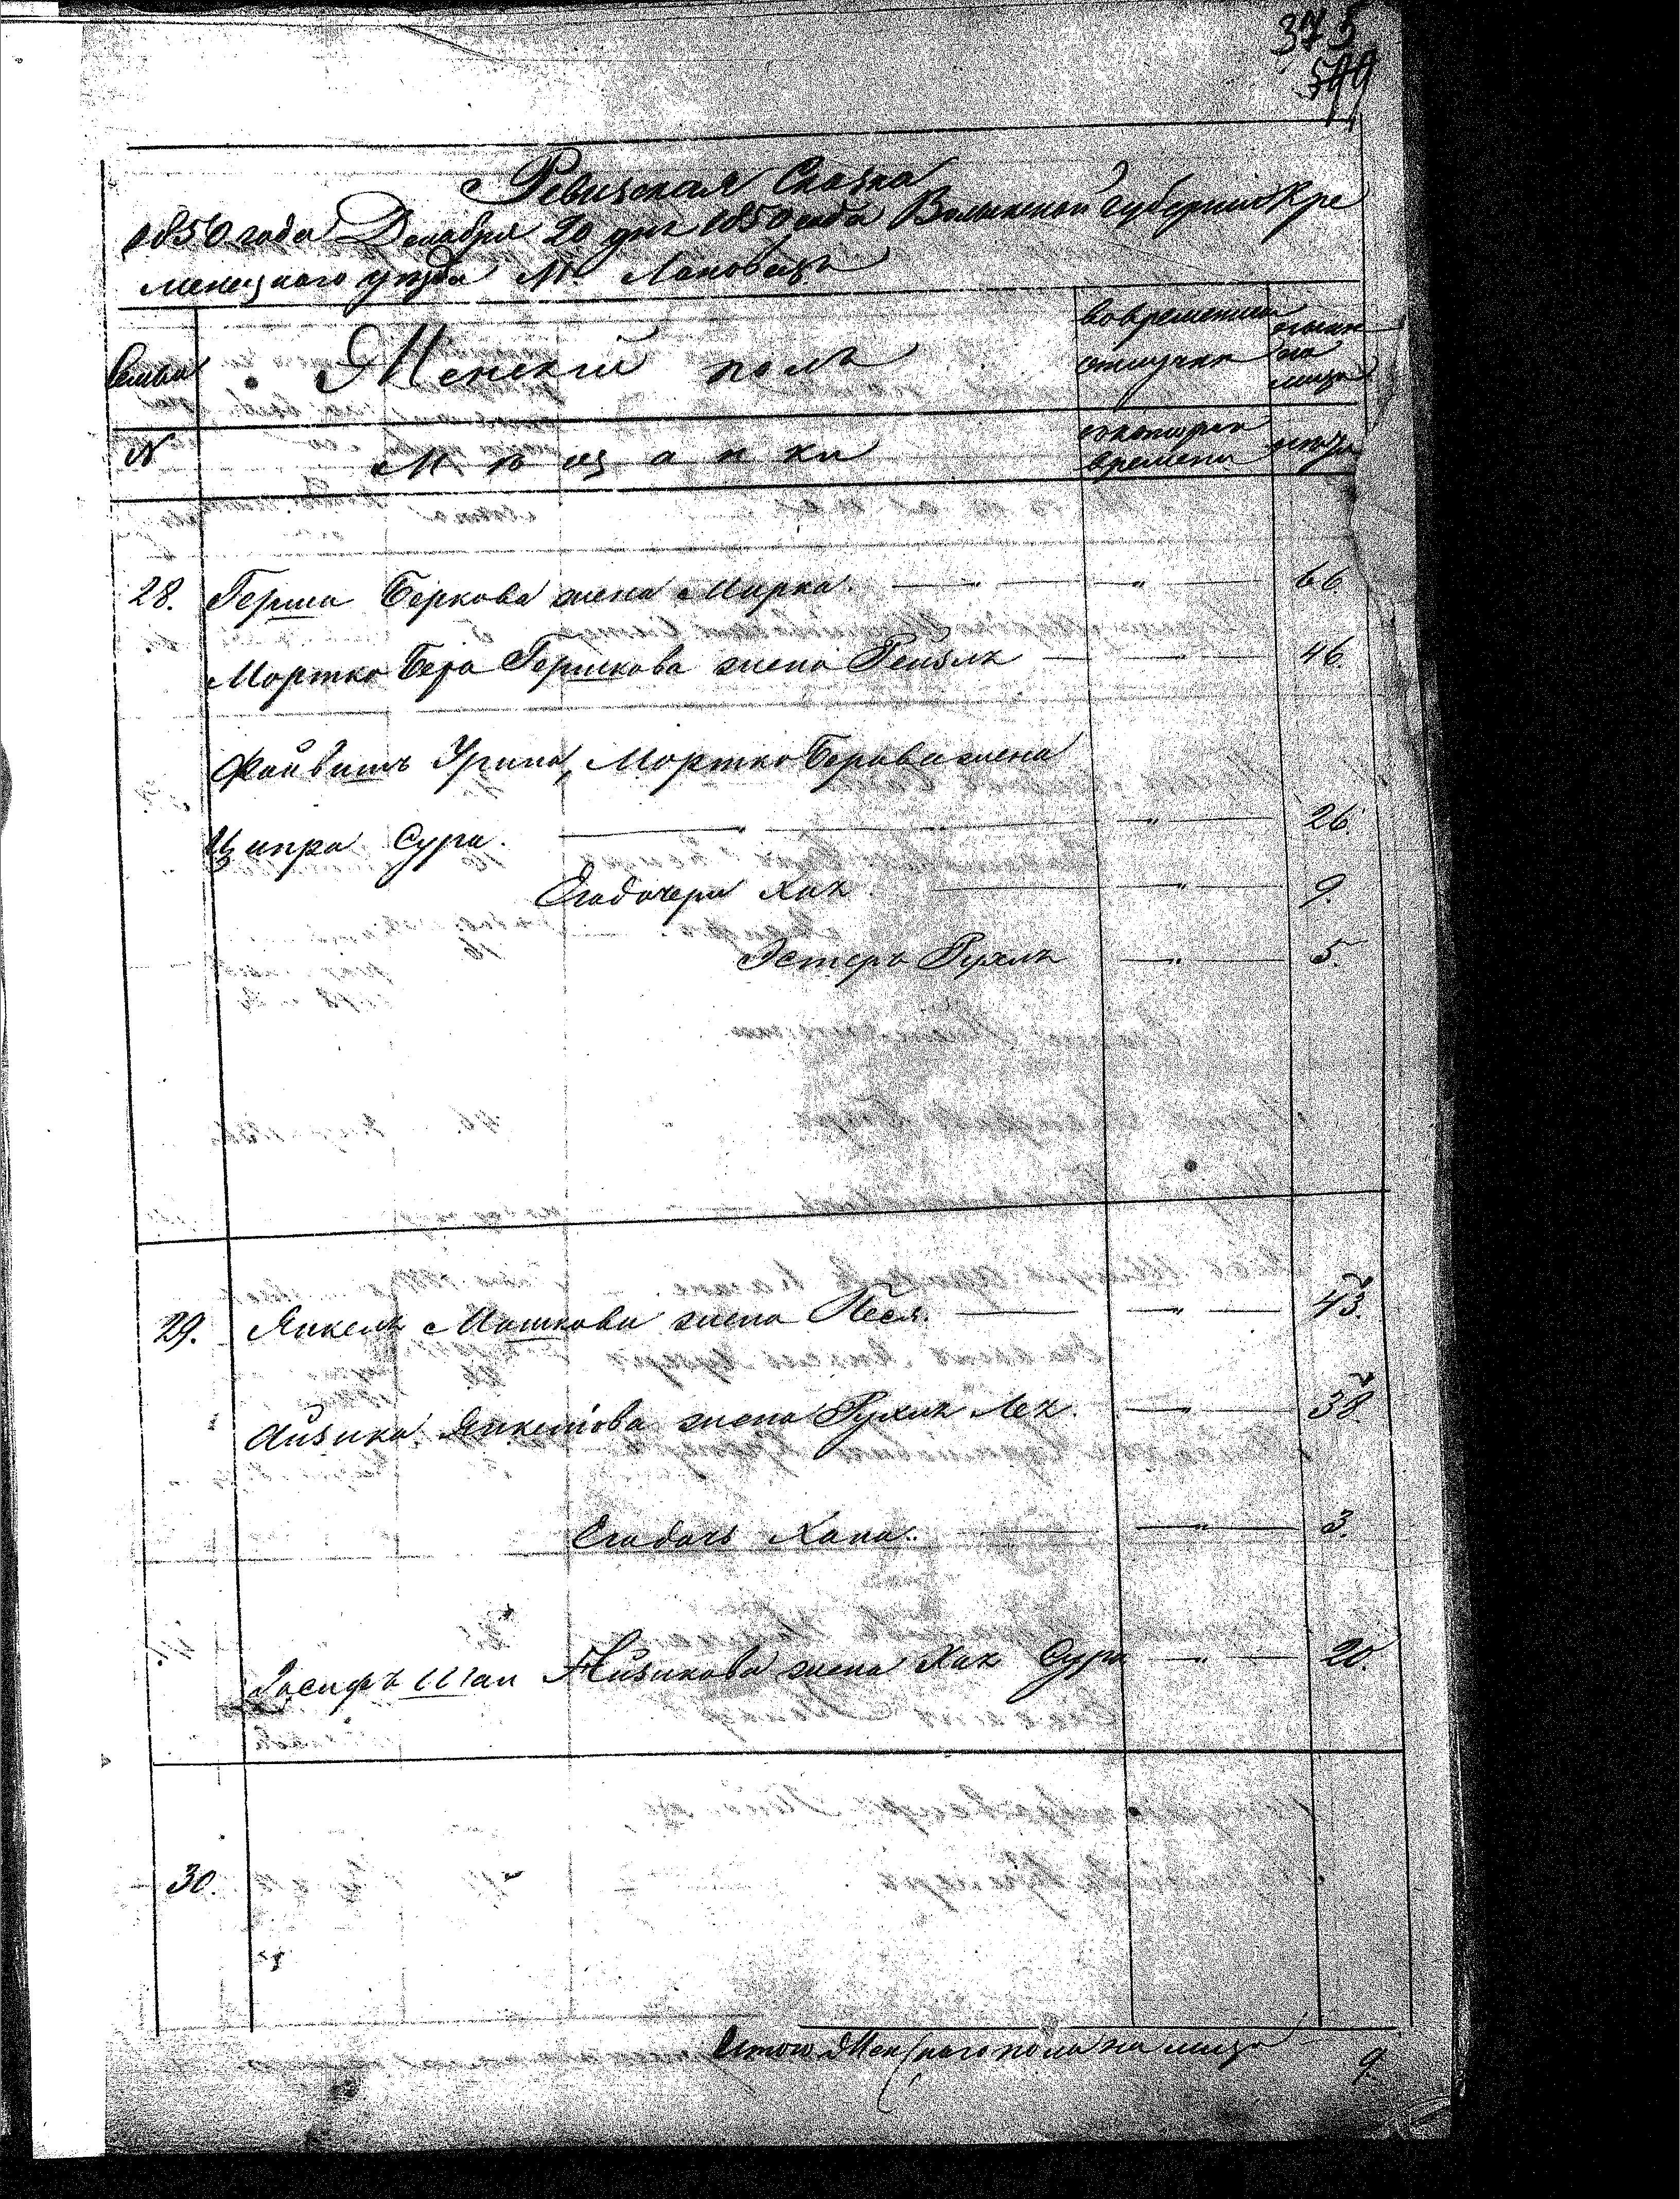 375
Ревизская Сказка
1850 года Декабря 20 дня 1850 года Волынской губернии Кре
менецкого уезда М. Лановец
Семьи
Женский полъ
во временной
отлучке
ныне
на
лицо
N
Мѣщанки
съ котораго
времени
лѣта
28. Герша Беркова жена Мирка. — " — 66.
Мортко Бера Гершкова жена Рейзля — " — 46.
Файвишъ Урина, Мортко Берови жена
Ципра Сура. — " — 26.
Егодочери Хая. — " — 9.
Эстеръ Рухля — " — 5.
29. Янкеля Мошкови жена Песя. — " — 43.
Айзика Янкелiова жена Рухля Лея. — " — 38
Егодочь Хана. — " — 3.
Iосифъ Шаи Айзикова жена Хая Сура — " — 20.
30.
Итого Женского пола на лицо 9